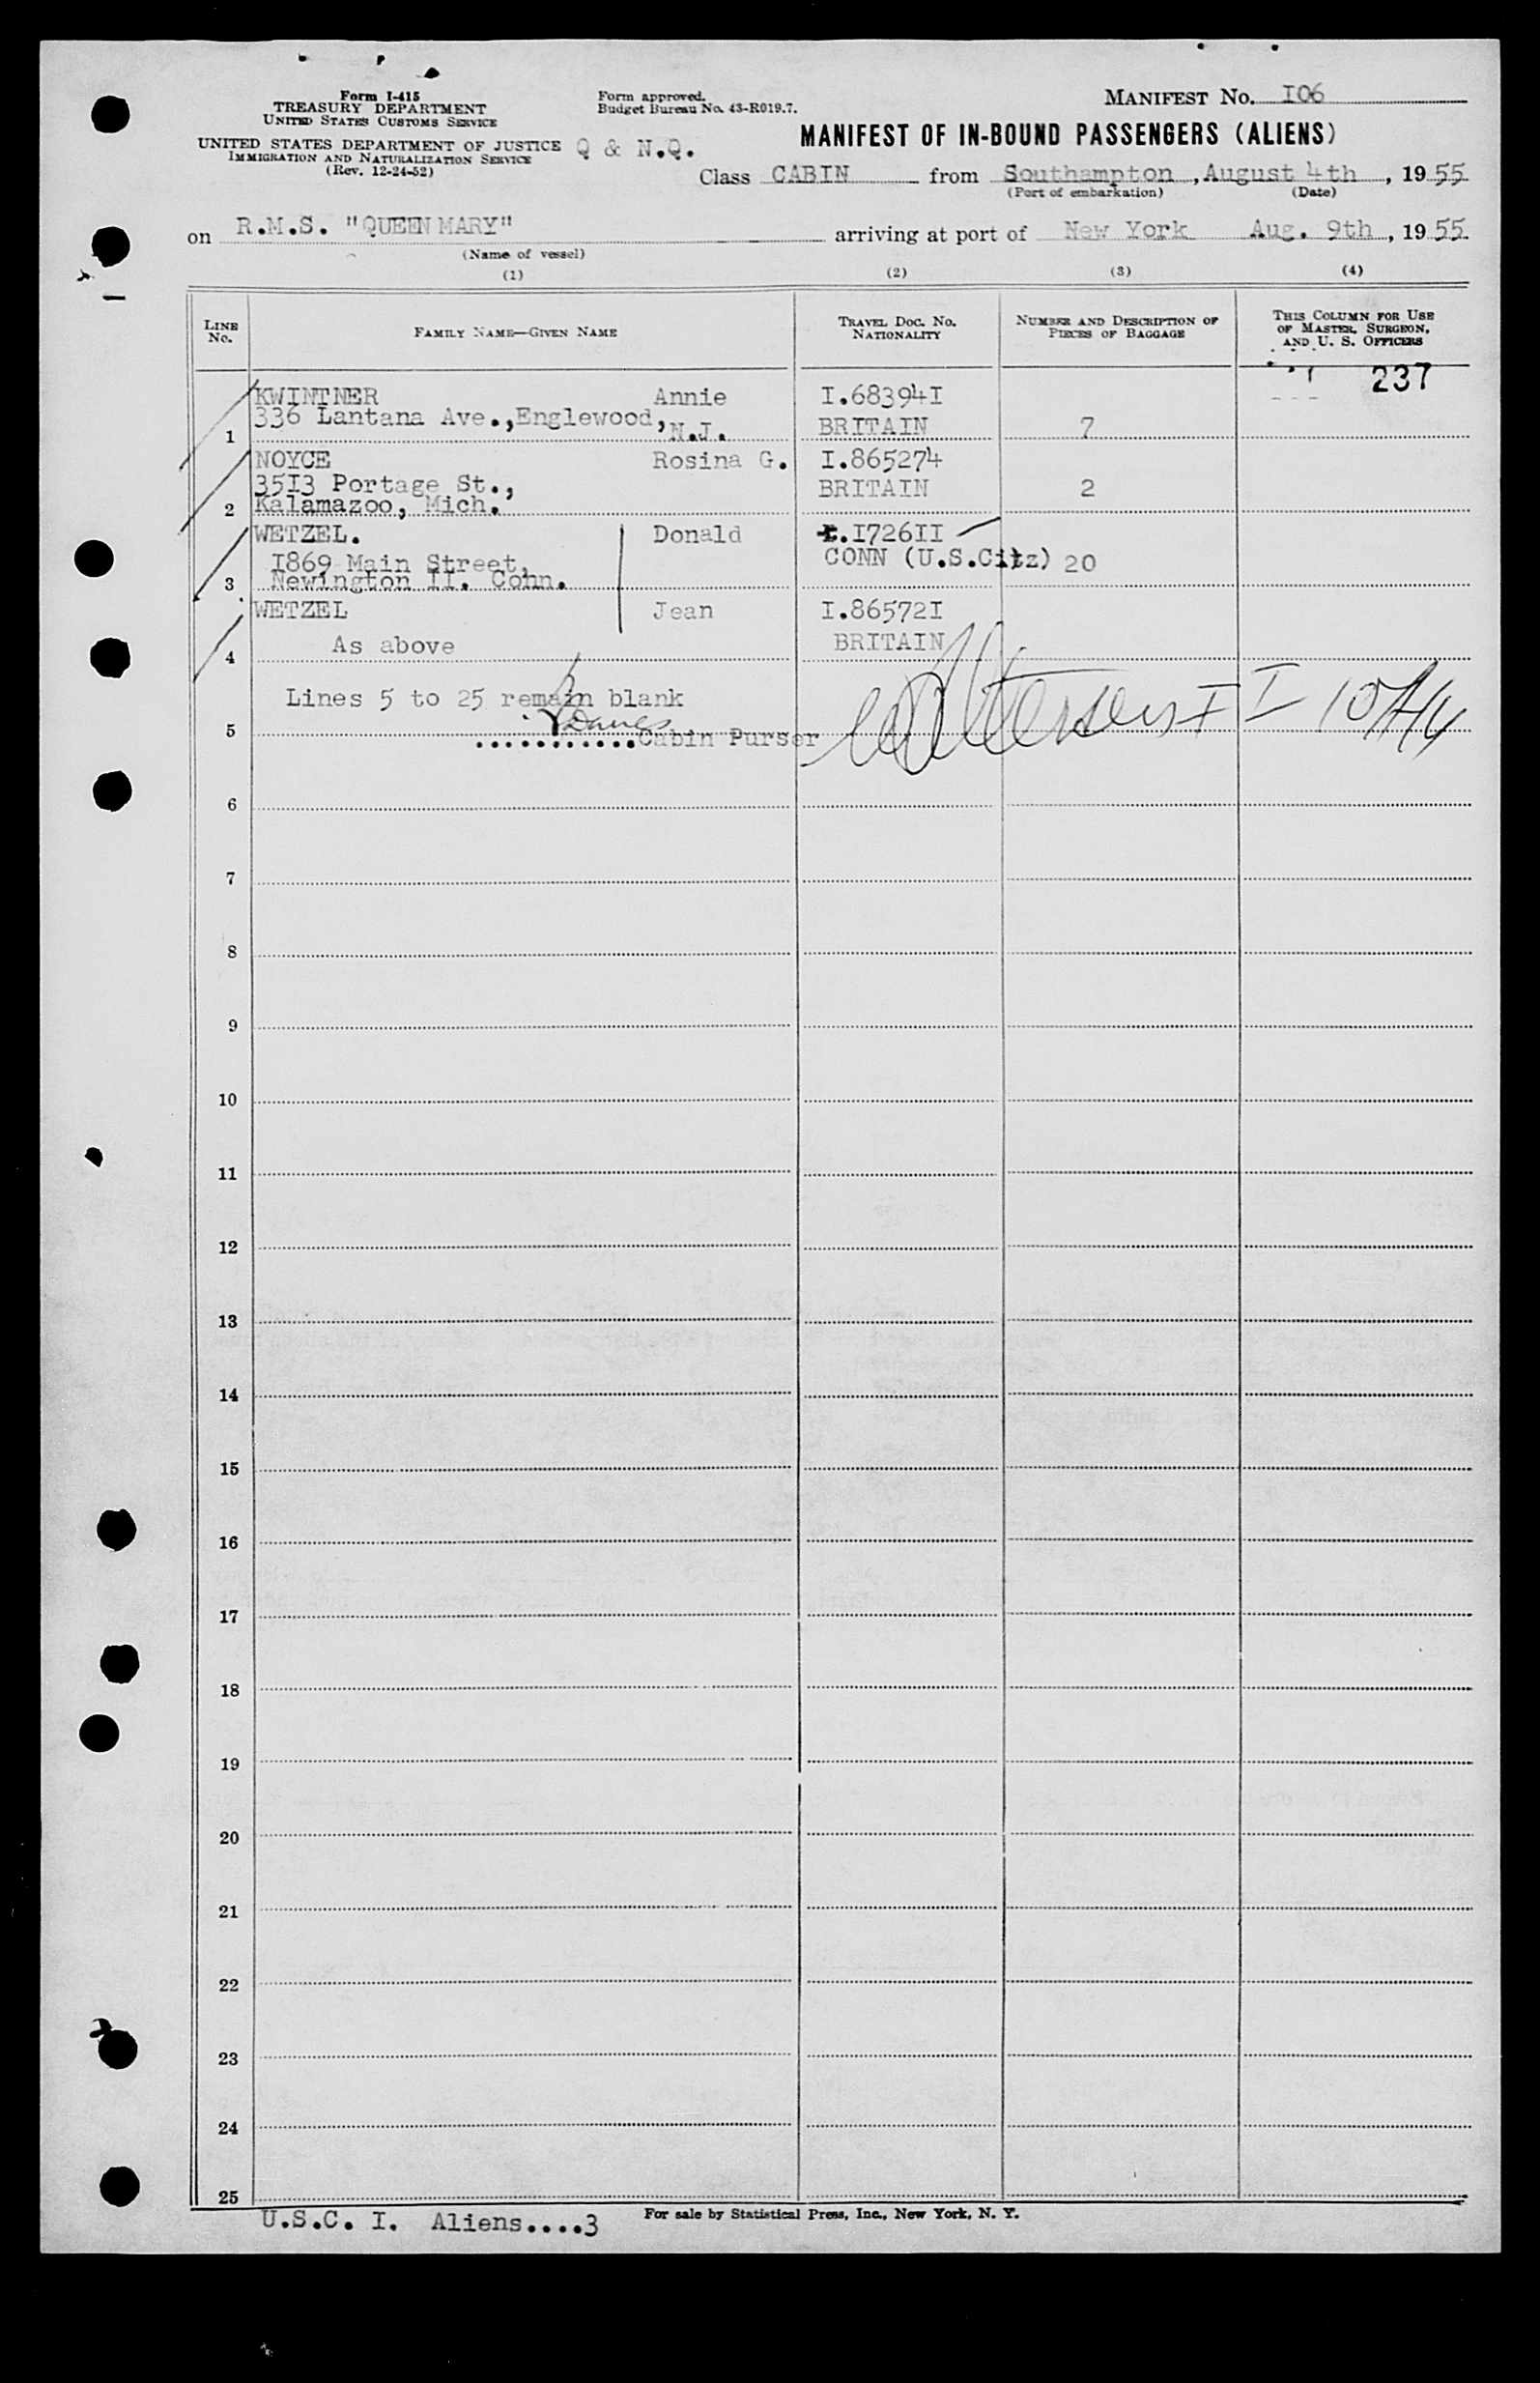 Form I-415
TREASURY DEPARTMENT
UNITED STATES CUSTOMS SERVICE
UNITED STATES DEPARTMENT OF JUSTICE
IMMIGRATION AND NATURALIZATION SERVICE
(Rev. 12-24-52)
Form approved.
Budget Bureau No. 43-R019.7.
Q & N.Q.
MANIFEST NO. I06
MANIFEST OF IN-BOUND PASSENGERS (ALIENS)
Class CABIN from Southampton, August 4th, 1955
(Port of embarkation) (Date)
on R.M.S. "QUEEN MARY" arriving at port of New York Aug. 9th, 1955
(Name of vessel)
(1) (2) (3) (4)
LINE NO.
FAMILY NAME—GIVEN NAME
TRAVEL DOC. NO.
NATIONALITY
NUMBER AND DESCRIPTION OF
PIECES OF BAGGAGE
THIS COLUMN FOR USE
OF MASTER, SURGEON,
AND U. S. OFFICERS
237
KWINTNER Annie I.68394I
336 Lantana Ave.,Englewood,N.J.
1 BRITAIN 7
NOYCE Rosina G. I.865274
35I3 Portage St., BRITAIN 2
2 Kalamazoo, Mich.
WETZEL. Donald I.I726II
I869 Main Street, CONN (U.S.Citz) 20
3 Newington II. Conn.
WETZEL Jean I.86572I
4 As above BRITAIN
Lines 5 to 25 remain blank
5 ...........Cabin Purser
6
7
8
9
10
11
12
13
14
15
16
17
18
19
20
21
22
23
24
25
U.S.C. I. Aliens....3
For sale by Statistical Press, Inc., New York, N. Y.